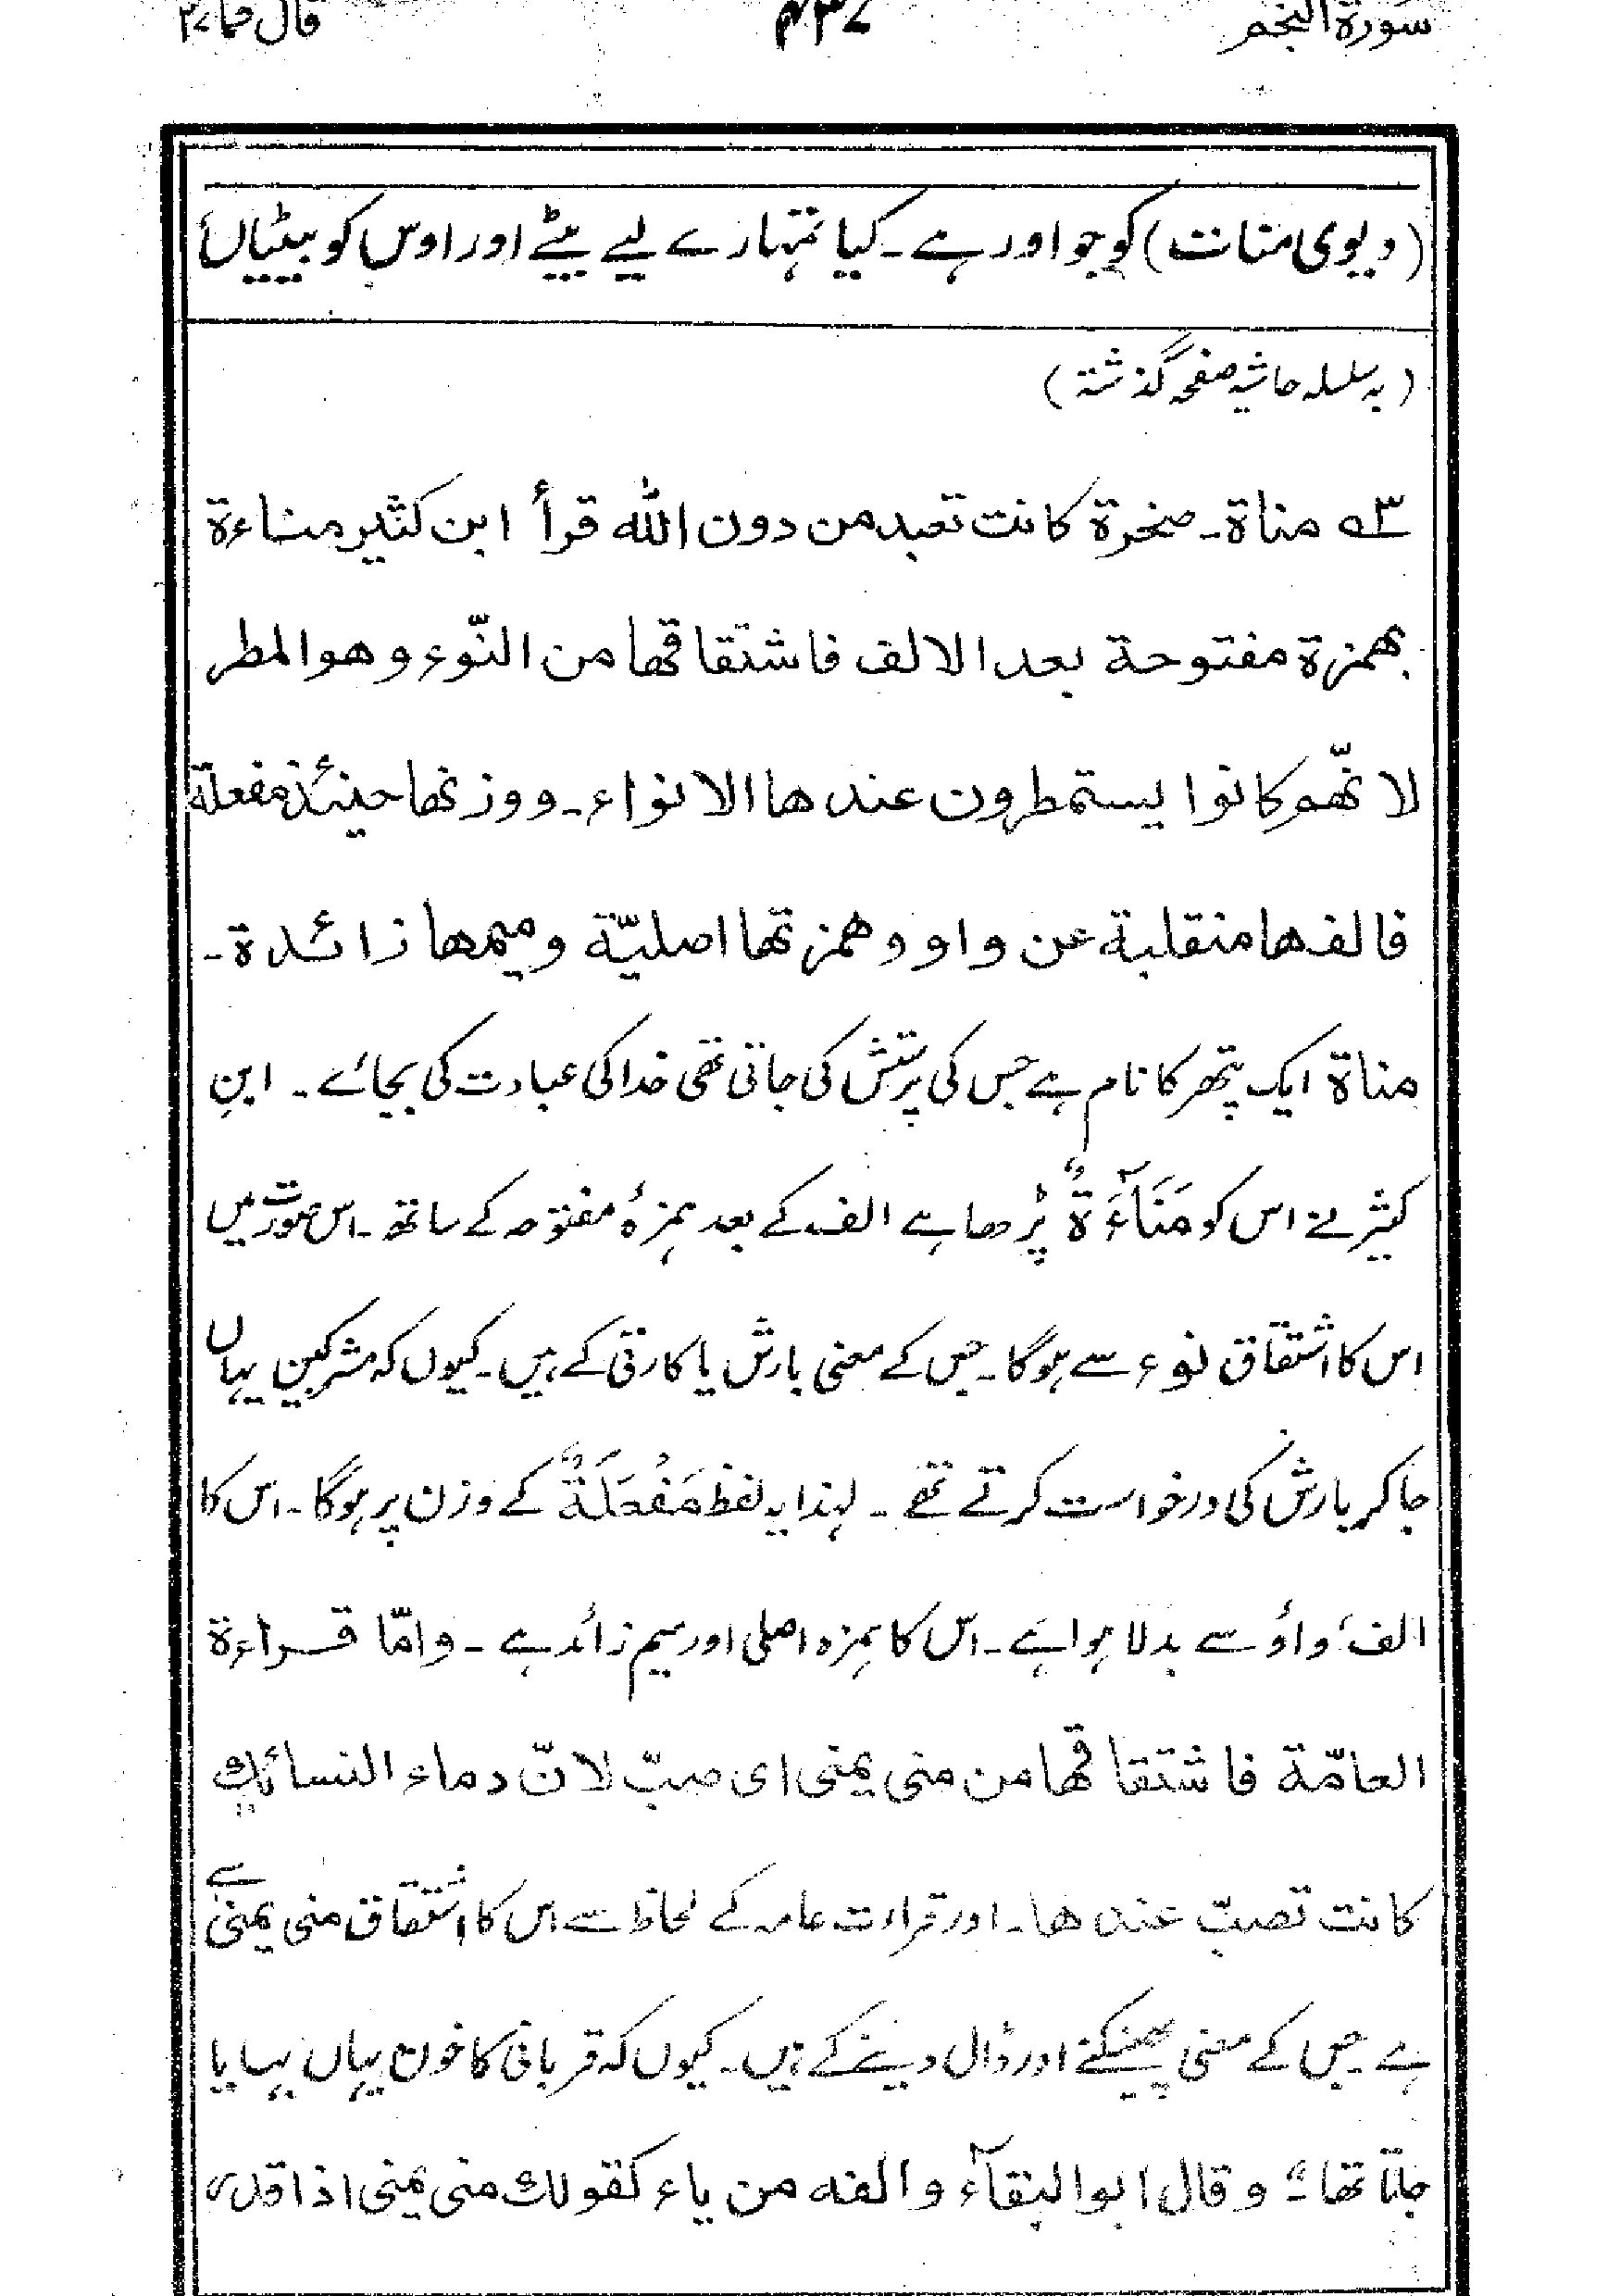 سورة النجم ۴۳۷ قال فما ۲۷
(دیوی منات) کو جو اور ہے۔ کیا تمہارے لیے بیٹے اور اوس کو بیٹیاں
(بہ سلسلہ حاشیہ صفحہ گذشتہ)
۳ مناة۔ صخرة كانت تعبد من دون الله قرأ ابن كثير مناءة
بهمزة مفتوحة بعد الالف فاشتقاقها من النّوء وهو المطر
لانّهم كانوا يستمطرون عندها الانواء۔ ووزنها حينئذ مفعلة
فالفها منقلبة عن واو وهمزتها اصليّة وميمها زائدة۔
مناة ایک پتھر کا نام ہے جس کی پرستش کی جاتی تھی خدا کی عبادت کی بجائے۔ ابنِ
کثیر نے اس کو مَنَآءَةٌ پڑھا ہے الف کے بعد ہمزۂ مفتوحہ کے ساتھ۔ اس صورت میں
اس کا اشتقاق نوء سے ہوگا۔ جس کے معنی بارش یا کارتی کے ہیں۔ کیوں کہ مشرکین یہاں
جا کر بارش کی درخواست کرتے تھے۔ لہذا یہ لفظ مَفْعَلَةٌ کے وزن پر ہوگا۔ اس کا
الف واؤ سے بدلا ہوا ہے۔ اس کا ہمزہ اصلی اور میم زائد ہے۔ وامّا قراءة
العامّة فاشتقاقها من منى يمنى اى صبّ لانّ دماء النسائك
كانت تصبّ عندها۔ اور قراءت عامہ کے لحاظ سے اس کا اشتقاق منی یمنی سے
ہے جس کے معنی پھینکنے اور ڈال دینے کے ہیں۔ کیوں کہ قربانی کا خون یہاں بہایا
جاتا تھا۔ وقال ابو البقآء والفه من ياء كقولك منى يمنى اذا قدر